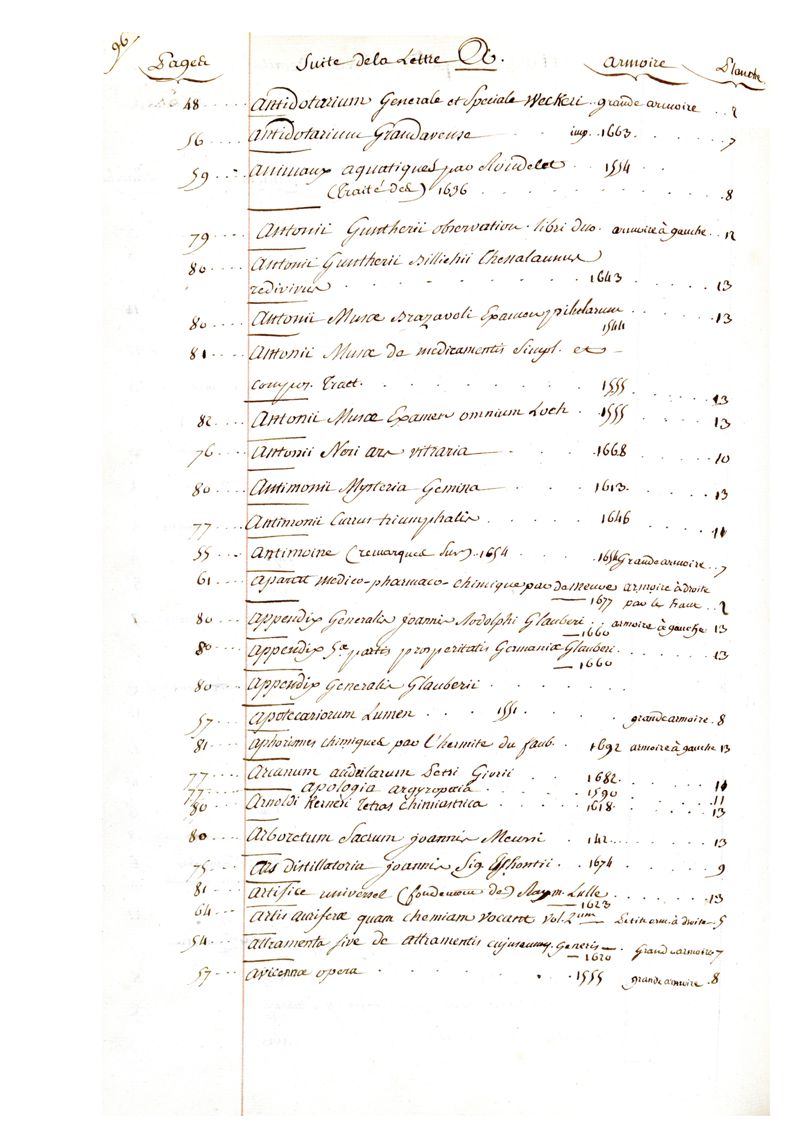 96
Pages Suite de la Lettre A. armoire Planche
48 Antidotarium Generale et Speciale Weckeri grande armoire 2
56 Antidotarium Grandavense imp. 1663. 7
59 Animaux aquatiques par Rondelet 1554
(Traité des) 1696 8
79 Antonii Guntherii observation. libri duo. armoire à gauche 12
80 Antonii Guntherii Billichii Thessalaunus
redivivus 1643 13
80 Antonii Musæ Brazavoli Examen pihelarum 13
1544
81 Antonii Musæ de medicamentis Simpl. et
compos. Tract. 1555 13
82 Antonii Musæ Examen omnium Loch. 1555 13
76 Antonii Neri ars vitraria 1668 10
80 Antimonii Mysteria Gemina 1613. 13
77 Antimonii Currus triumphalis 1646 11
55 Antimoine (remarques Sur) 1654 1654 Grande armoire 7
61 Aparat medico-pharmaco-chimique par de meuve armoire à droite
1677 par le haut 2
80 Appendix Generalis joannis Rodolphi Glauberi armoire à gauche 13
1660
80 Appendix 5æ partis prosperitatis Germaniæ Glauberi 13
1660
80 Appendix Generalis Glauberii
57 Apotecariorum Lumen 1551 grande armoire 8
81 Aphorismes chimiques par l'hermite du faub. 1692 armoire à gauche 13
77 Arcanum acidularum Petri Givrii 1682. 11
77 apologia argyropœia 1590 11
80 Arnoldi Kerneri Tetras chimiastrica 1618. 13
80 Arboretum Sacrum joannis Meursi 142 13
75 Ars distillatoria joannis Sig. Elshontii 1674 9
81 Artifice universel (fondement de) Raym. Lulle 13
1623
64 Artis auriferæ quam chemiam vocant vol. 2um Petite arm. à droite 5
54 Attramenta sive de attramentis cujuscumq. generis Grand armoire 7
1620
57 Avicennæ opera 1555 grande armoire 8